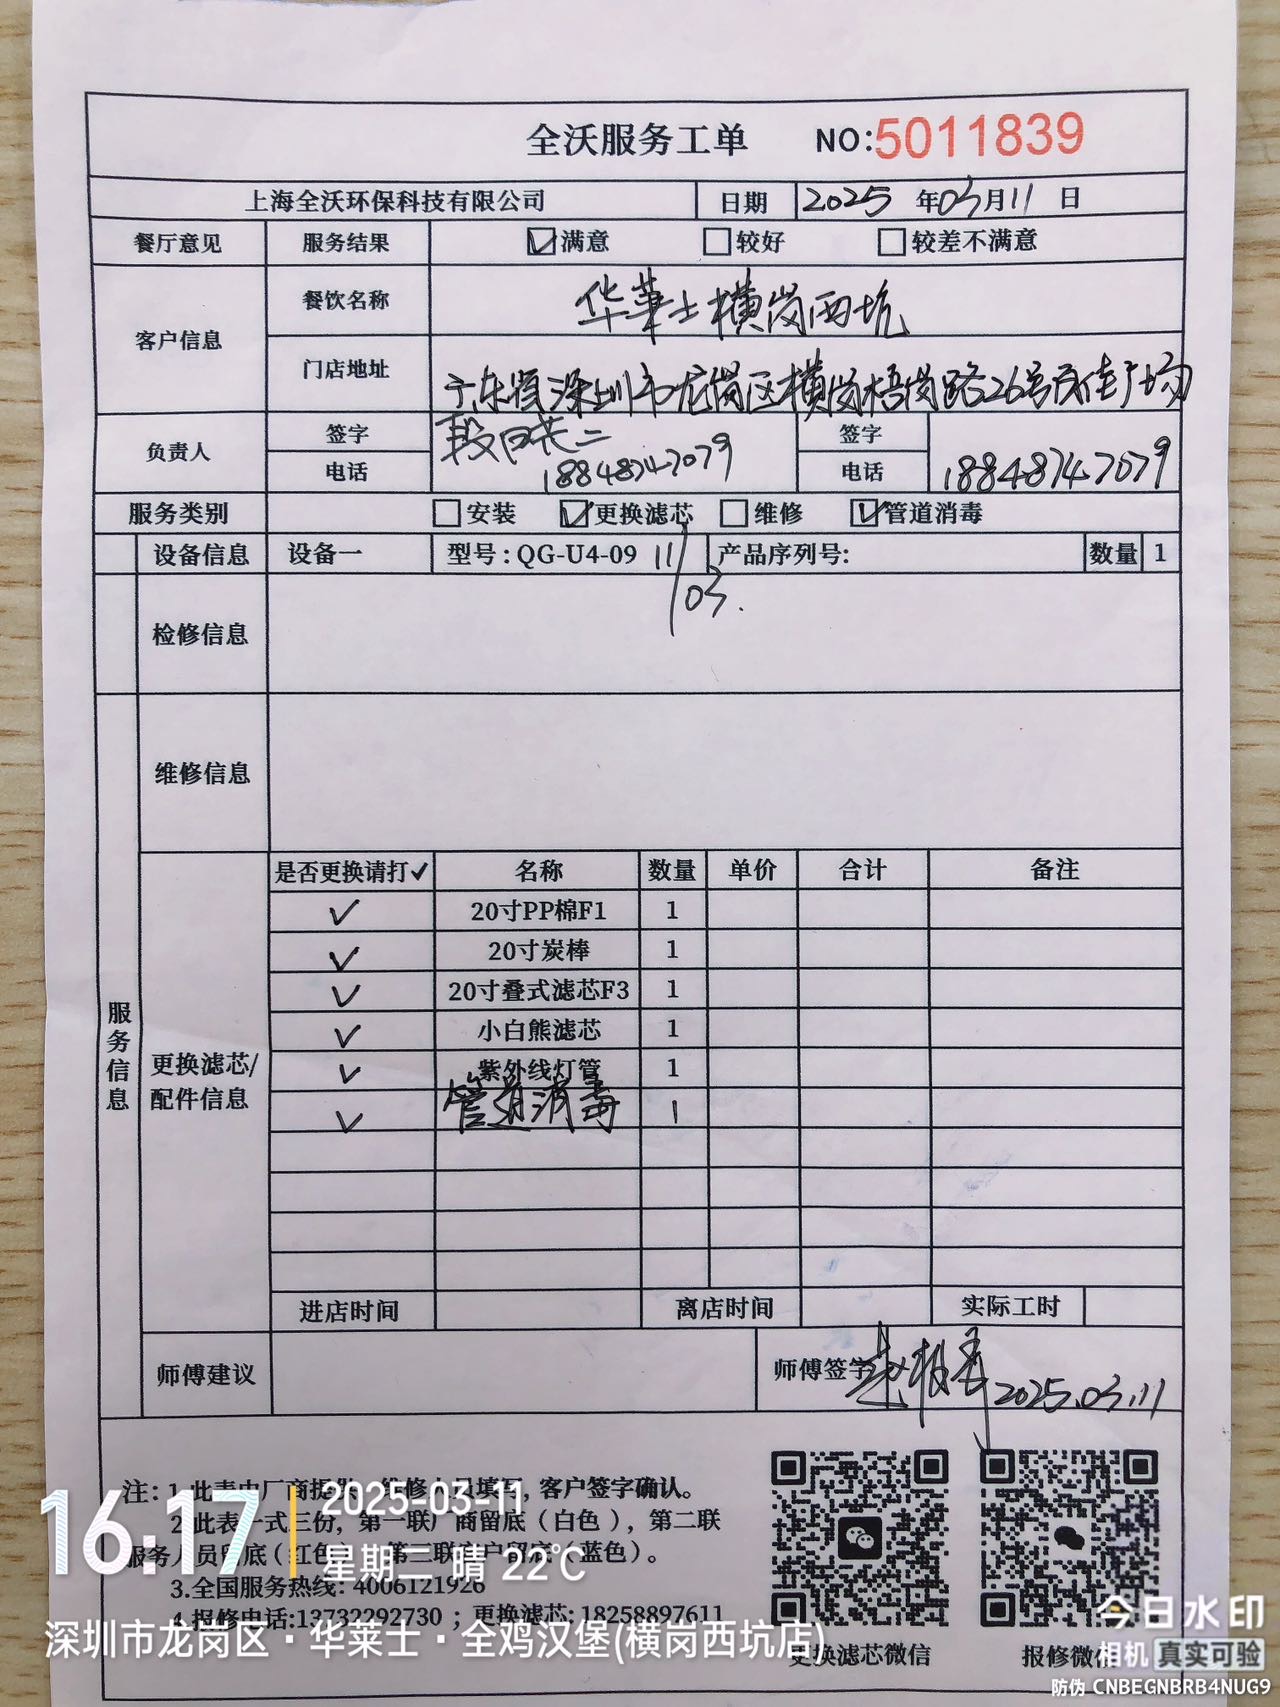 全沃服务工单 NO:5011839
上海全沃环保科技有限公司 日期 2025 年03月11 日
餐厅意见 服务结果 ☑满意 □较好 □较差不满意
客户信息 餐饮名称 华莱士横岗西坑
门店地址 广东省深圳市龙岗区横岗梧岗路26号 广场
负责人 签字 签字
电话 18848747079 电话 18848747079
服务类别 □安装 ☑更换滤芯 □维修 ☑管道消毒
设备信息 设备一 型号:QG-U4-09 11/03. 产品序列号: 数量 1
检修信息
维修信息
服务信息
更换滤芯/
配件信息
是否更换请打✓ 名称 数量 单价 合计 备注
✓ 20寸PP棉F1 1
✓ 20寸炭棒 1
✓ 20寸叠式滤芯F3 1
✓ 小白熊滤芯 1
✓ 紫外线灯管 1
✓ 管道消毒 1
进店时间 离店时间 实际工时
师傅建议 师傅签字 2025.03.11
注: 1.此表由厂商提供 维修人员填写, 客户签字确认。
2.此表一式三份, 第一联厂商留底(白色), 第二联
服务人员留底(红色) 第三联客户留底(蓝色)。
3.全国服务热线: 4006121926
4.报修电话:13732292730 ; 更换滤芯: 18258897611
更换滤芯微信 报修微信
16:17
2025-03-11
星期二 晴 22℃
深圳市龙岗区·华莱士·全鸡汉堡(横岗西坑店)
今日水印
相机 真实可验
防伪 CNBEGNBRB4NUG9